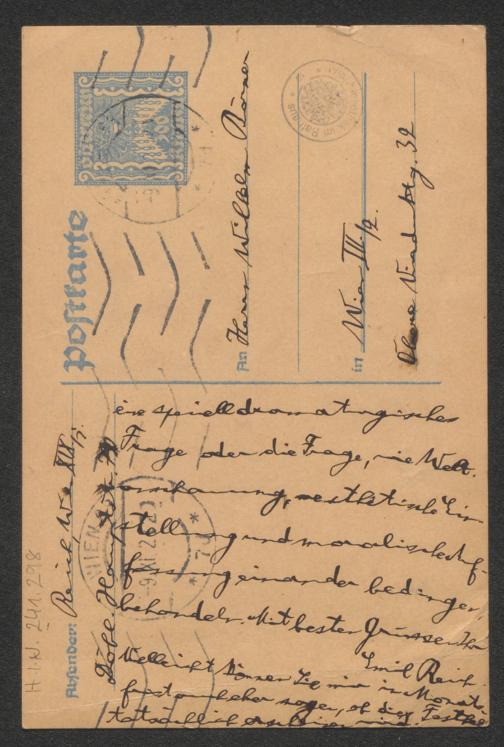 Postkarte
An Herrn Wilhelm Börner
in Wien III./2.
Obere Viad. 32
Absender: Reich, Wien XIX/1.
Döbl. Hauptstr.
eine speziell dramaturgische
Frage oder die Frage, wie Welt-
anschauung, aesthetische Ein-
stellung und moralische Auf-
fassung einander bedingen,
behandeln. Mit besten Grüssen Ihr
Emil Reich.
Vielleicht können Sie mir in Monats-
sagen, ob diese
tatsächlich
WIEN
H.I.N. 241.298